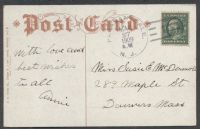 Post Card
1909
A.M.
N.J.
With love and
best wishes
to all
Annie
Miss Susie E. McDermott
289 Maple St
Danvers Mass